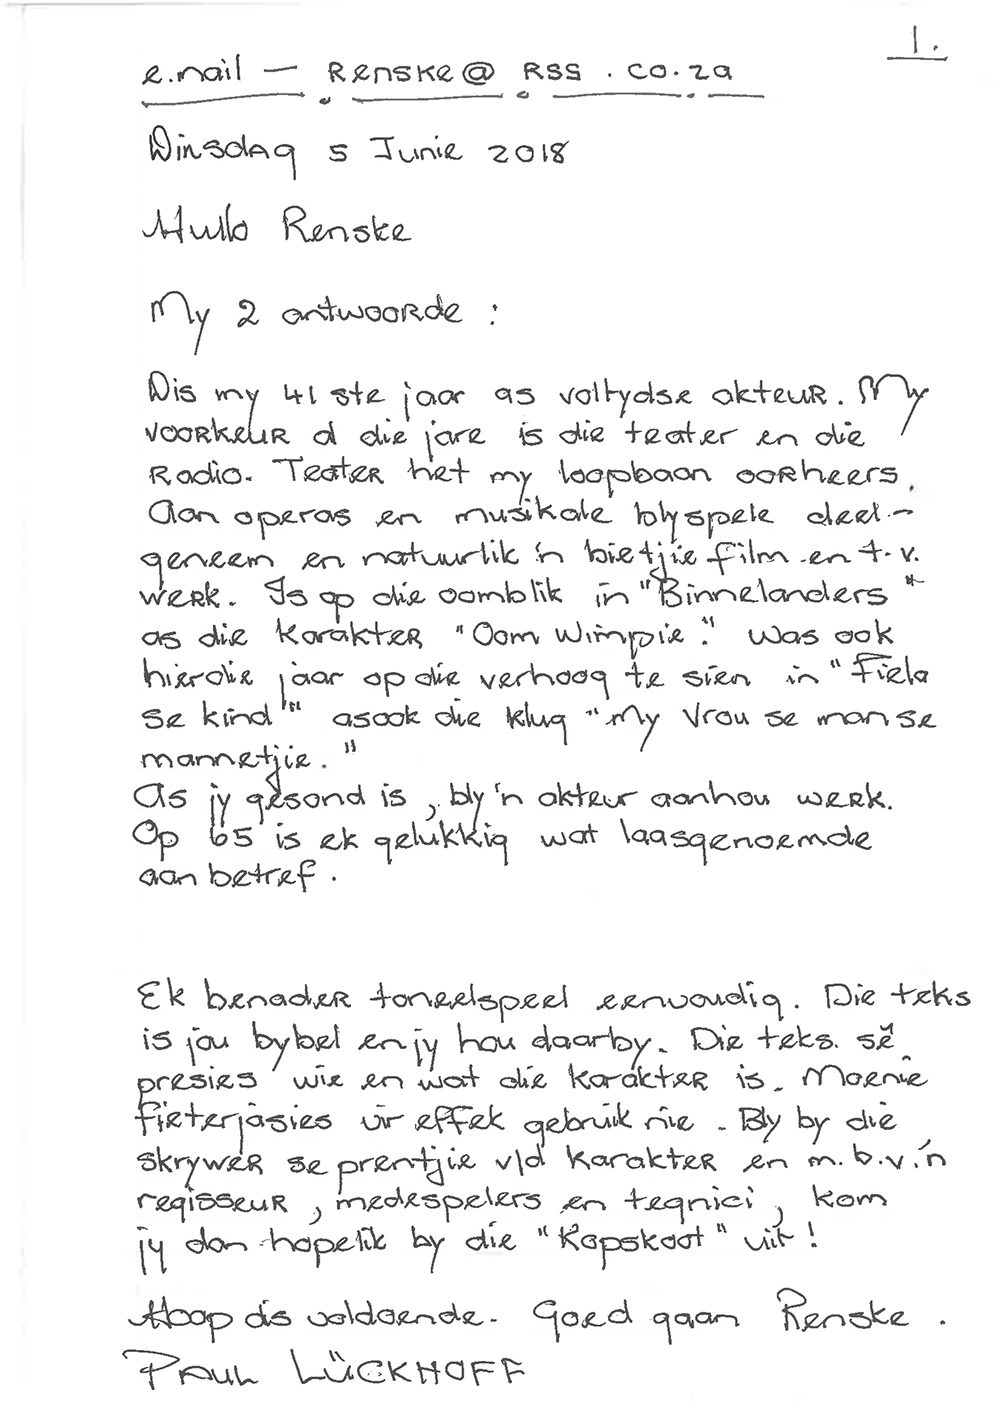 1.
e.mail – Renske@RSS.co.za
Dinsdag 5 Junie 2018
Hullo Renske
My 2 antwoorde :
Dis my 41 ste jaar as voltydse akteur. My
voorkeur d die jare is die teater en die
Radio. Teater het my loopbaan oorheers.
Aan operas en musikale blyspele deel-
geneem en natuurlik 'n bietjie film en t.v.
werk. Is op die oomblik in "Binnelanders"
as die karakter "Oom Wimpie". Was ook
hierdie jaar op die verhoog te sien in "Fiela
se kind" asook die klug "My vrou se man se
mannetjie."
As jy gesond is, bly 'n akteur aanhou werk.
Op 65 is ek gelukkig wat laasgenoemde
aanbetref.
Ek benader toneelspeel eenvoudig. Die teks
is jou bybel en jy hou daarby. Die teks sê
presies wie en wat die karakter is. Moenie
fieterjasies vir effek gebruik nie. Bly by die
skrywer se prentjie v/d karakter en m.b.v. 'n
regisseur, medespelers en tegnici, kom
jy dan hopelik by die "Kapskoot" uit!
Hoop dis voldoende. Goed gaan Renske.
Paul Lückhoff